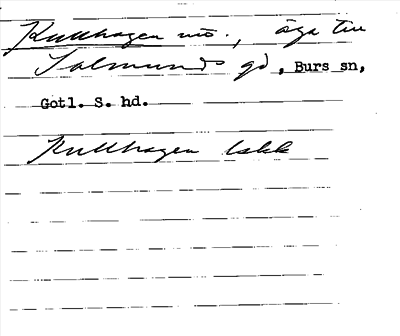 Kullhagen mo., äga till
Salmunds gd, Burs sn,
Gotl. S. hd.
Kullhagen